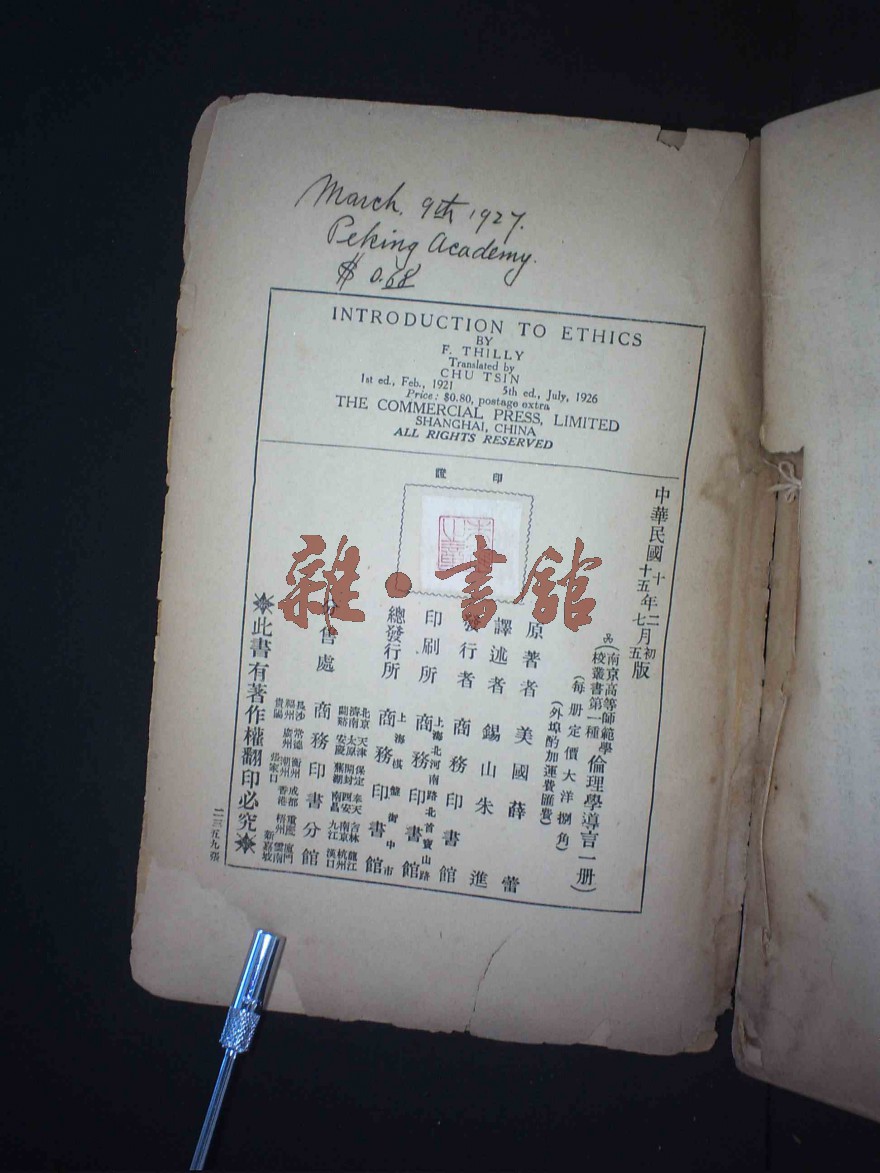 March. 9th 1927.
Peking Academy.
$ 0.68
INTRODUCTION TO ETHICS
BY
F. THILLY
Translated by
CHU TSIN
1st ed., Feb., 1921 5th ed., July, 1926
Price: $0.80, postage extra
THE COMMERCIAL PRESS, LIMITED
SHANGHAI, CHINA
ALL RIGHTS RESERVED
印證
中華民國十年二月初版
十五年七月五版
南京高等師範學校叢書第一種
倫理學導言一册
(每册定價大洋捌角)
(外埠酌加運費匯費)
原著者 美國薛蕾
譯述者 錫山朱進
發行者 商務印書館
印刷所 上海北河南路北首寶山路 商務印書館
總發行所 上海棋盤街中市 商務印書館
分售處 商務印書分館
北京 天津 保定 奉天 吉林 龍江
濟南 太原 開封 西安 南京 杭州
安慶 蕪湖 南昌 九江 漢口
長沙 常德 衡州 成都 重慶 廈門
福州 廣州 潮州 香港 梧州 雲南
貴陽 張家口 新嘉坡
此書有著作權翻印必究
二三五九張
雜·書館